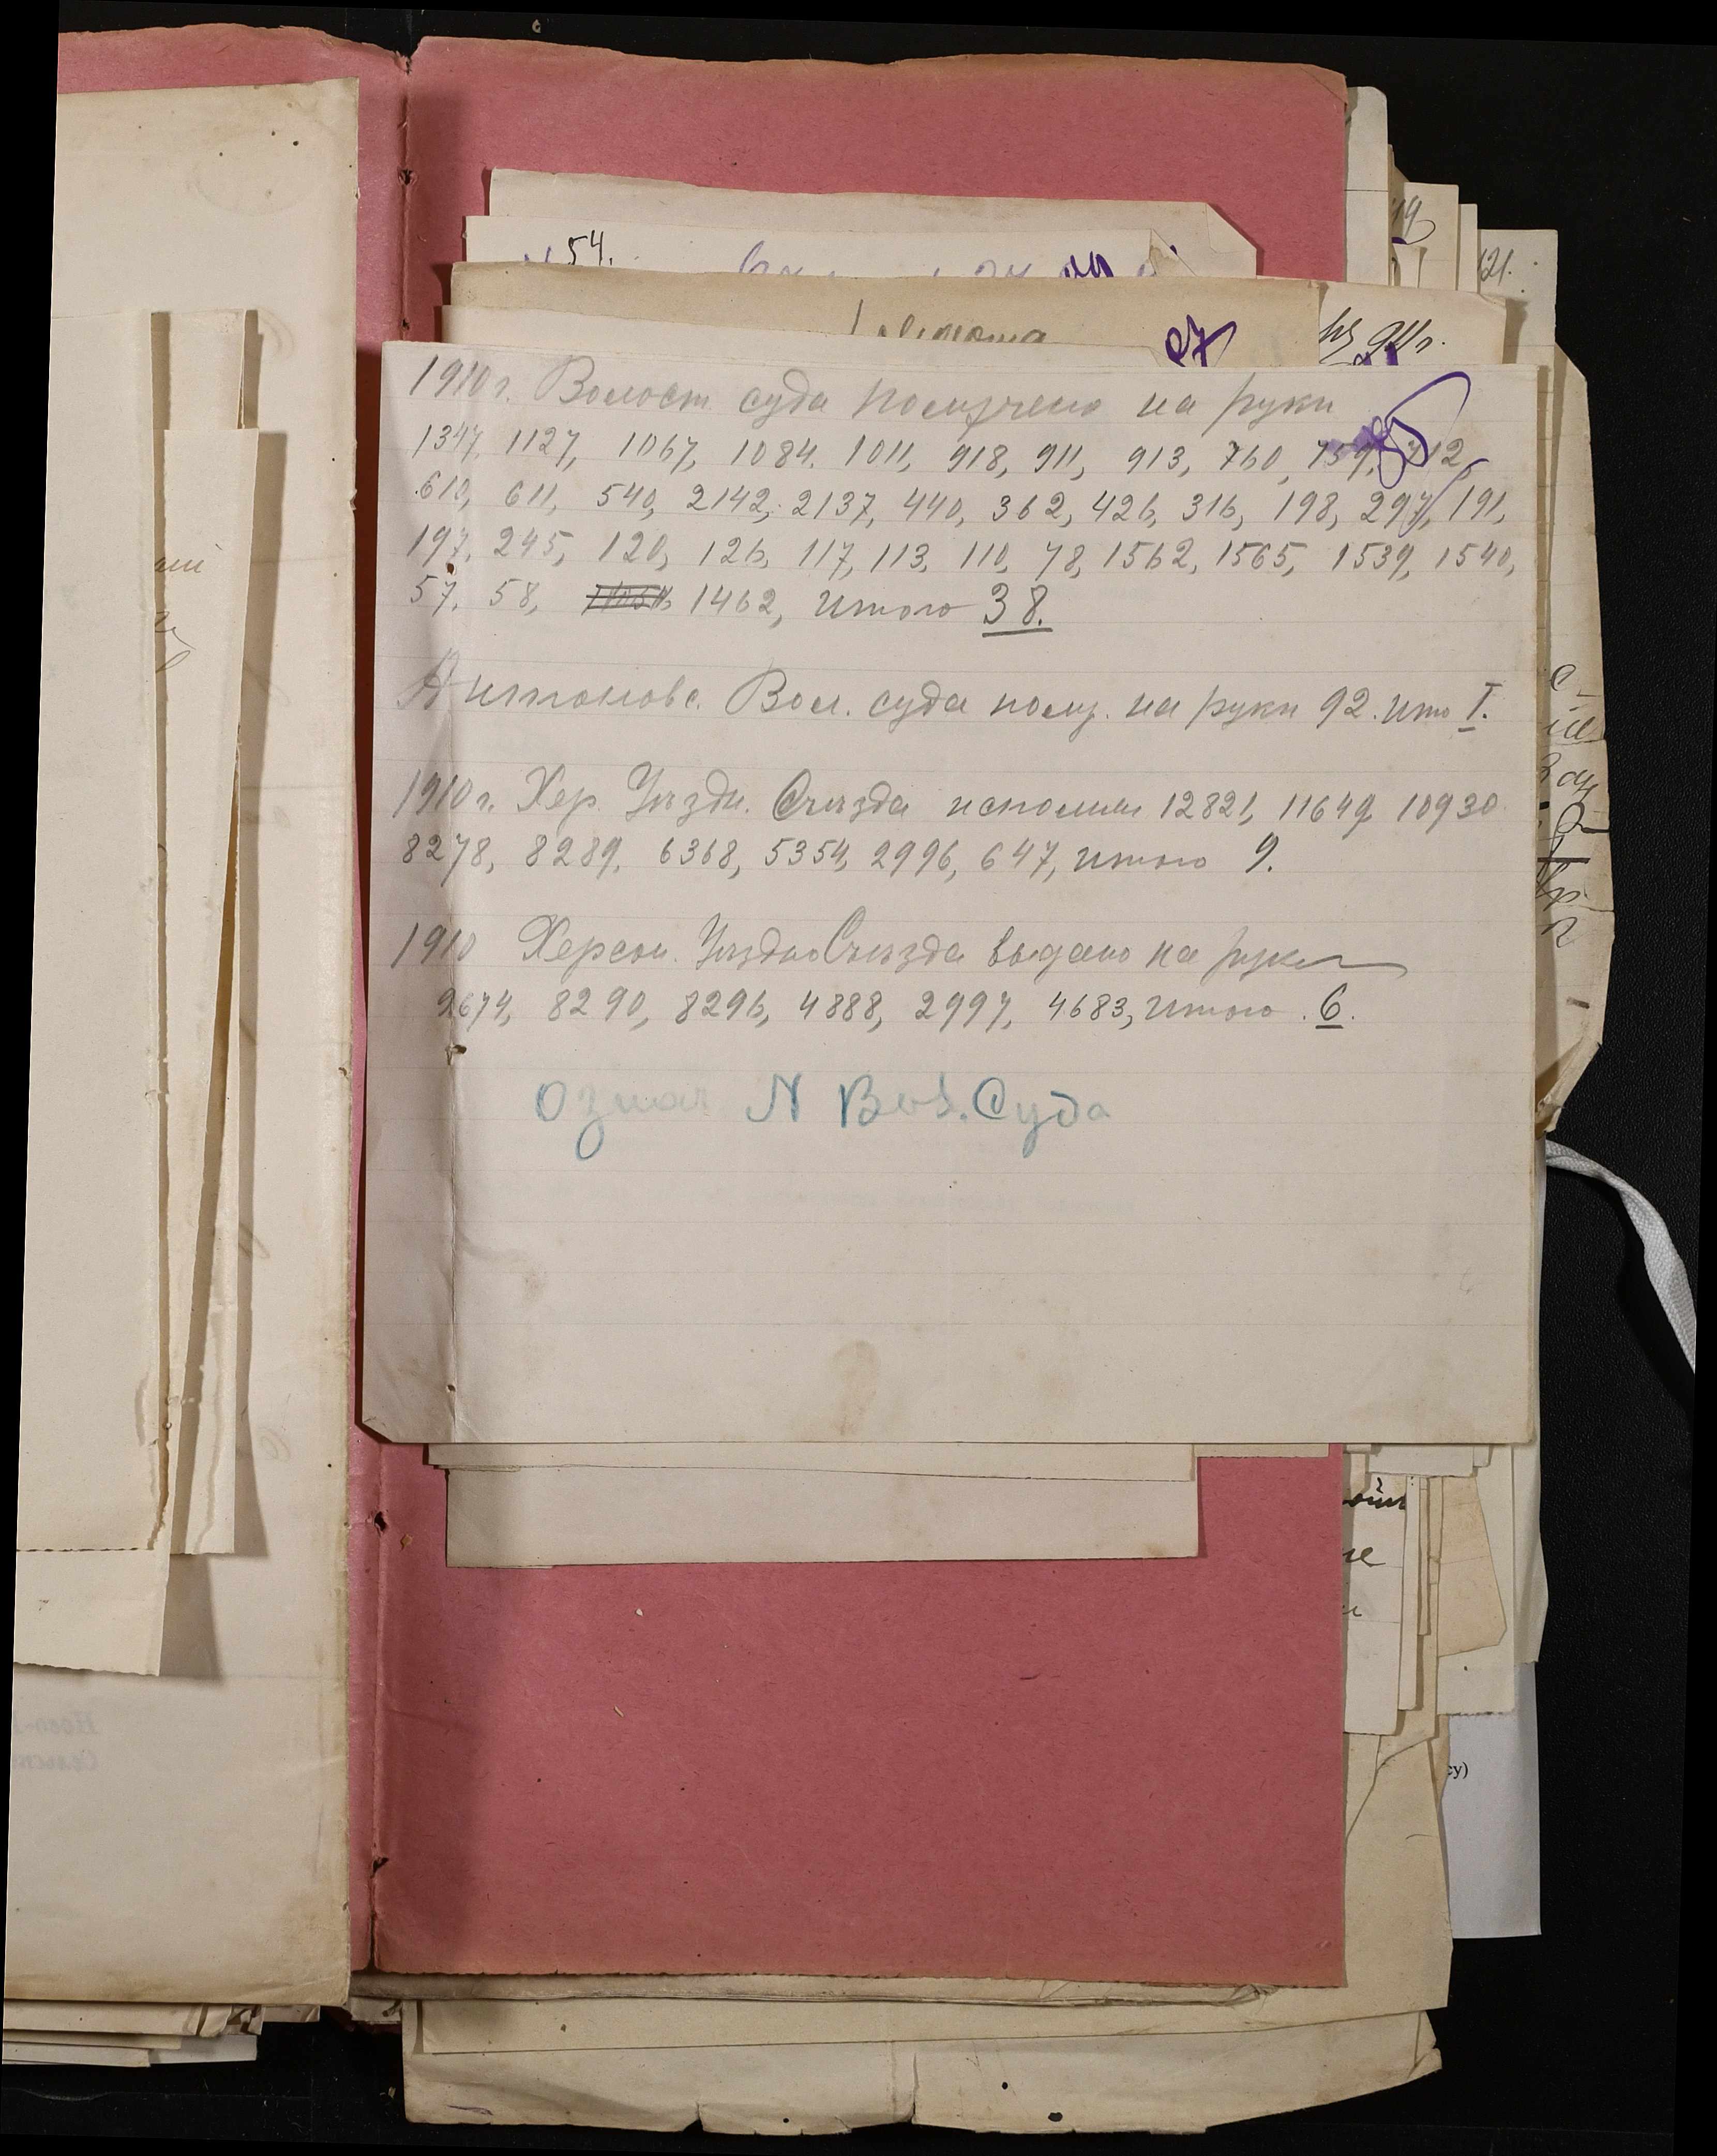 54.
27
121.
1910 г. Волост суда получено на руки
1347, 1127, 1067, 1084, 1011, 918, 911, 913, 760, 759, 712,
610, 611, 540, 2142, 2137, 440, 362, 426, 316, 198, 297, 191,
197, 245, 120, 126, 117, 113, 110, 78, 1562, 1565, 1539, 1540,
57, 58, 1462, Итого 38.
Антоновс. Вол. суда получ. на руки 92. Ито I.
1910 г. Хер. Уѣздн. Съѣзда исполнен 12821, 11649, 10930
8278, 8289, 6368, 5354, 2996, 647, итого 9.
1910 Херсон. Уѣздно Съѣзда выдано на руки
9674, 8290, 8296, 4888, 2997, 4683, Итого 6.
Означ N Вол. Суда
су)